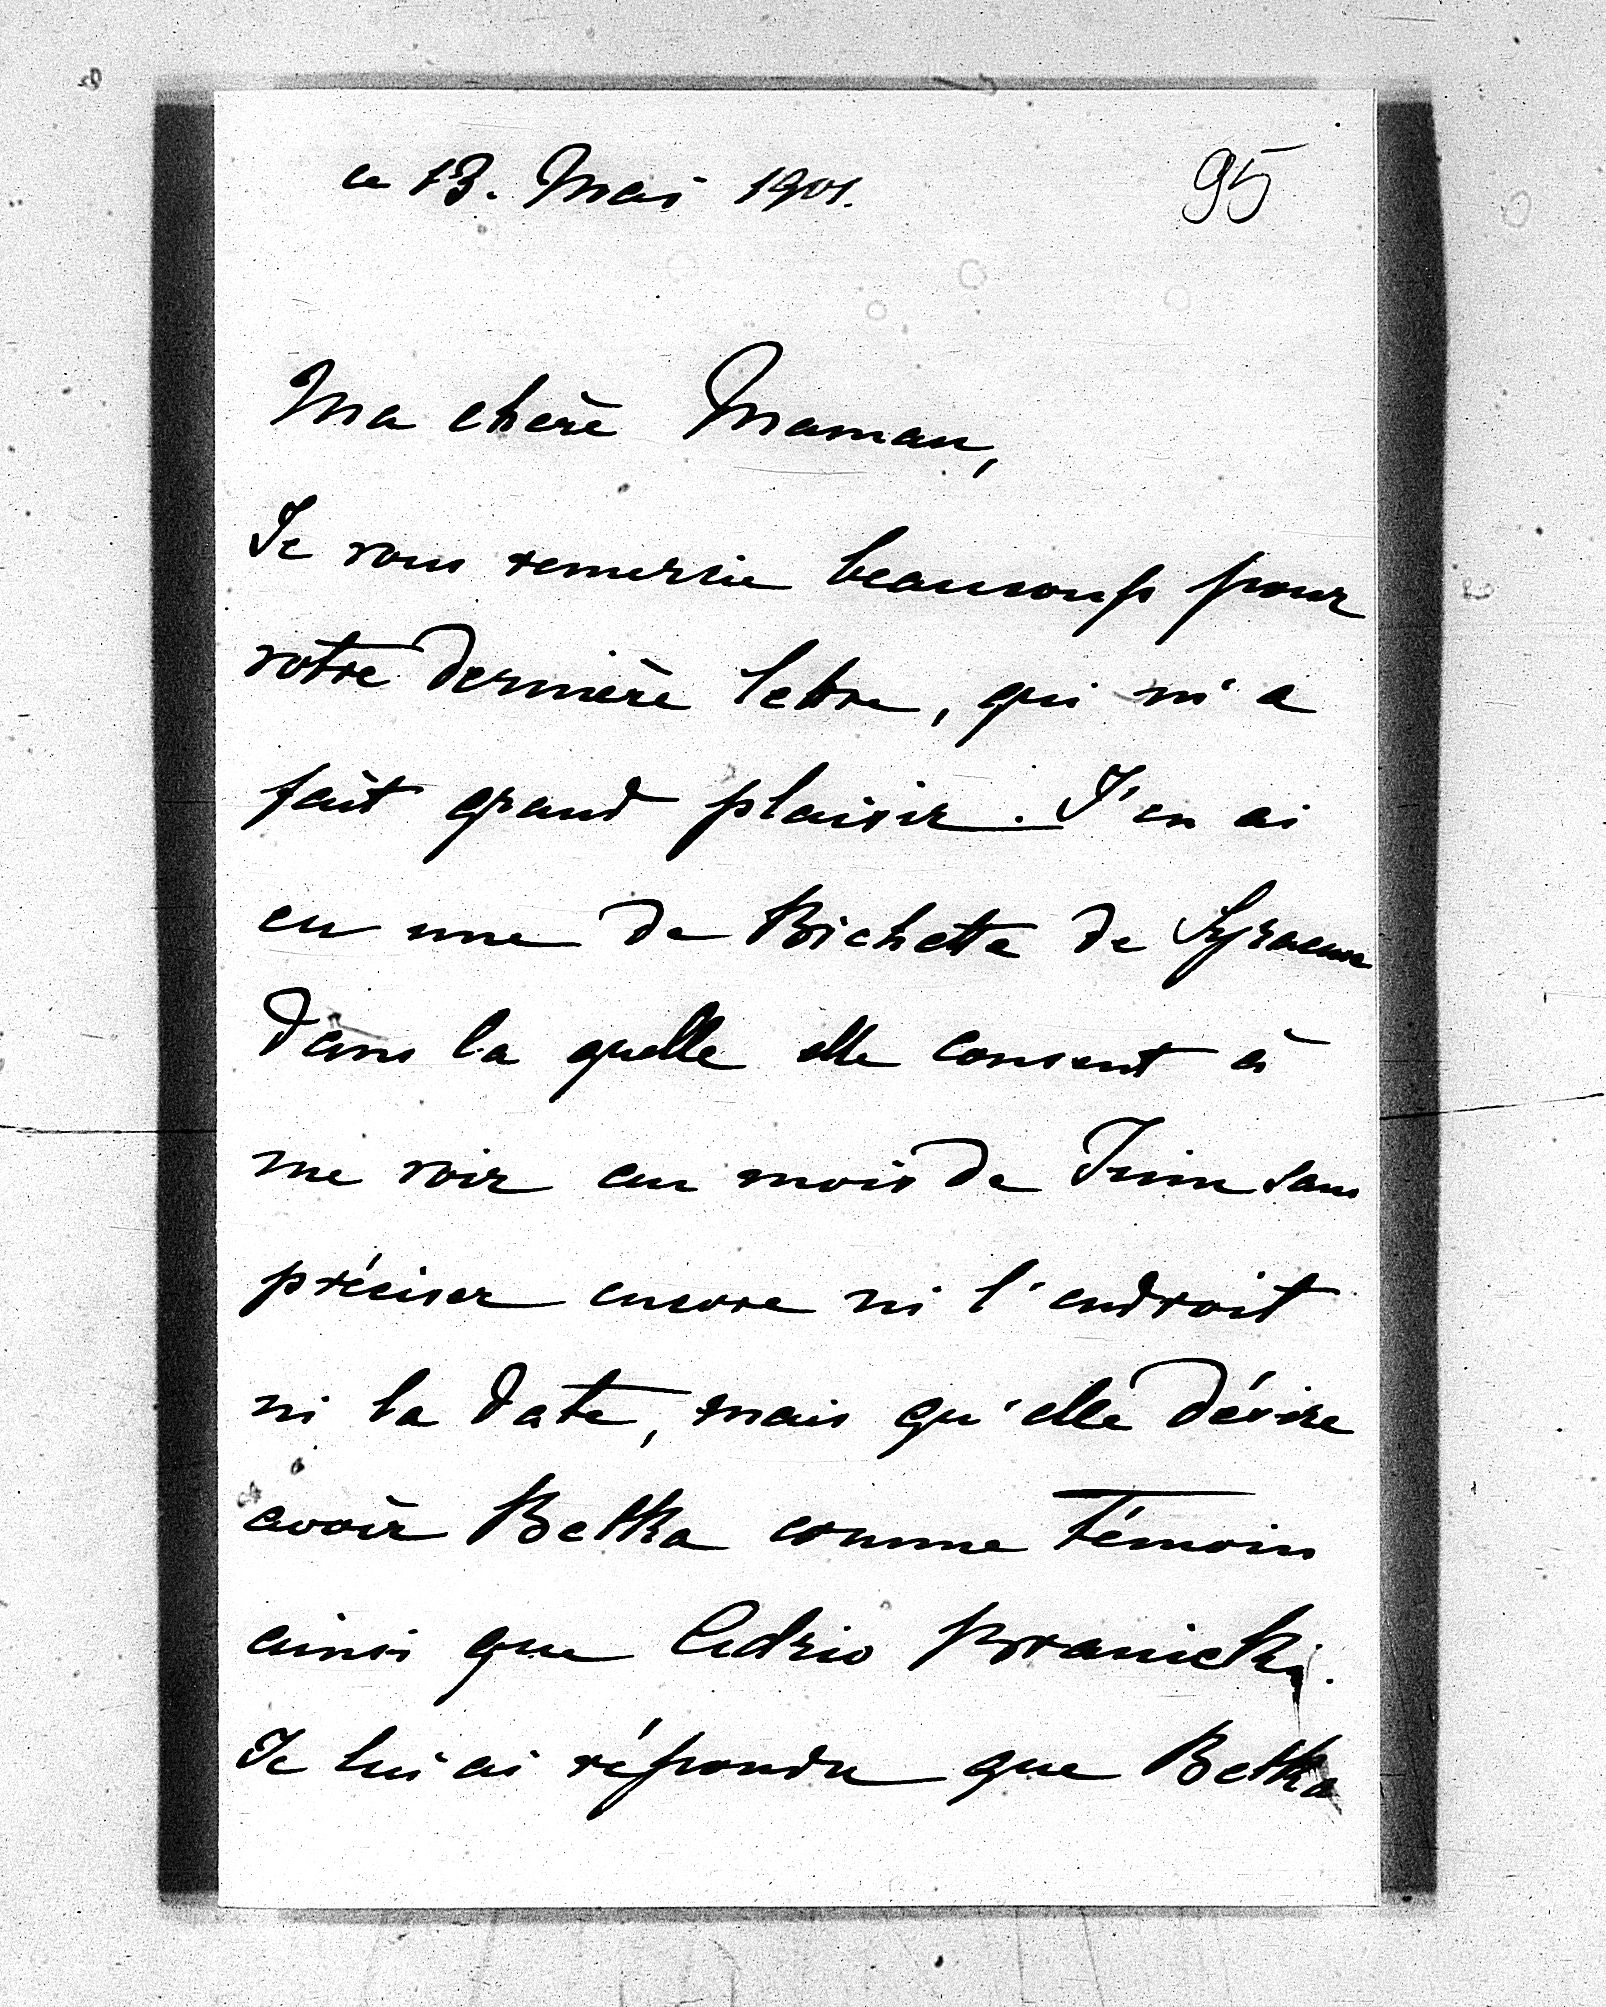 ce 13. Mai 1901.
95
Ma chère Maman,
Je vous remercie beaucoup pour
votre dernière lettre, qui m'a
fait grand plaisir. J'en ai
eu une de Bichette de Syracuse
dans la quelle elle consent à
me voir au mois de Juin sans
préciser encore ni l'endroit
ni la date, mais qu'elle désire
avoir Betka comme témoin
ainsi que Adzio Branicki.
Je lui ai répondu que Betka